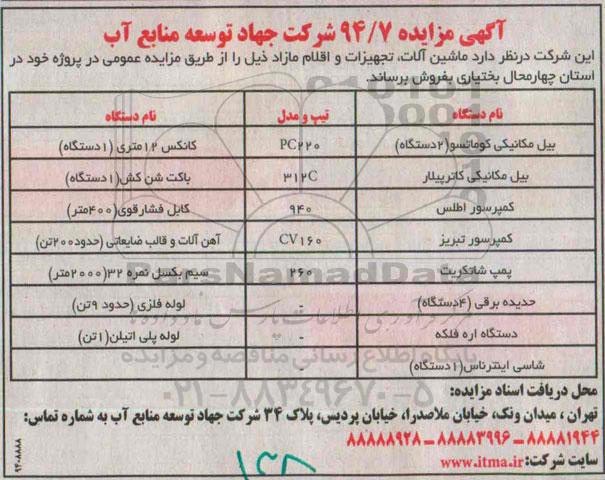 آگهی مزایده ۹۴/۷ شرکت جهاد توسعه منابع آب
این شرکت درنظر دارد ماشین آلات، تجهیزات و اقلام مازاد ذیل را از طریق مزایده عمومی در پروژه خود در
استان چهارمحال بختیاری بفروش برساند.
نام دستگاه تیپ و مدل نام دستگاه
بیل مکانیکی کوماتسو(۲دستگاه) PC۲۲۰ کانکس ۱۲متری (۱دستگاه)
بیل مکانیکی کاترپیلار ۳۱۲C باکت شن کش(۱دستگاه)
کمپرسور اطلس ۹۴۰ کابل فشارقوی(۴۰۰متر)
کمپرسور تبریز CV۱۶۰ آهن آلات و قالب ضایعاتی (حدود۲۰۰تن)
پمپ شاتکریت ۲۶۰ سیم بکسل نمره ۳۲(۲۰۰۰متر)
حدیده برقی (۴دستگاه) - لوله فلزی (حدود ۹تن)
دستگاه اره فلکه - لوله پلی اتیلن(۱تن)
شاسی اینترناس(۱دستگاه)
محل دریافت اسناد مزایده:
تهران ، میدان ونک، خیابان ملاصدرا، خیابان پردیس، پلاک ۲۴ شرکت جهاد توسعه منابع آب به شماره تماس:
۸۸۸۸۱۹۴۴ ـ ۸۸۸۸۳۹۹۶ ـ ۸۸۸۸۸۹۲۸
سایت شرکت: www.itma.ir
۹۴۰۸۸۸۸
ParsNamadData
پایگاه اطلاع رسانی مناقصه و مزایده
۰۲۱-۸۸۳۴۹۶۷۰-۵